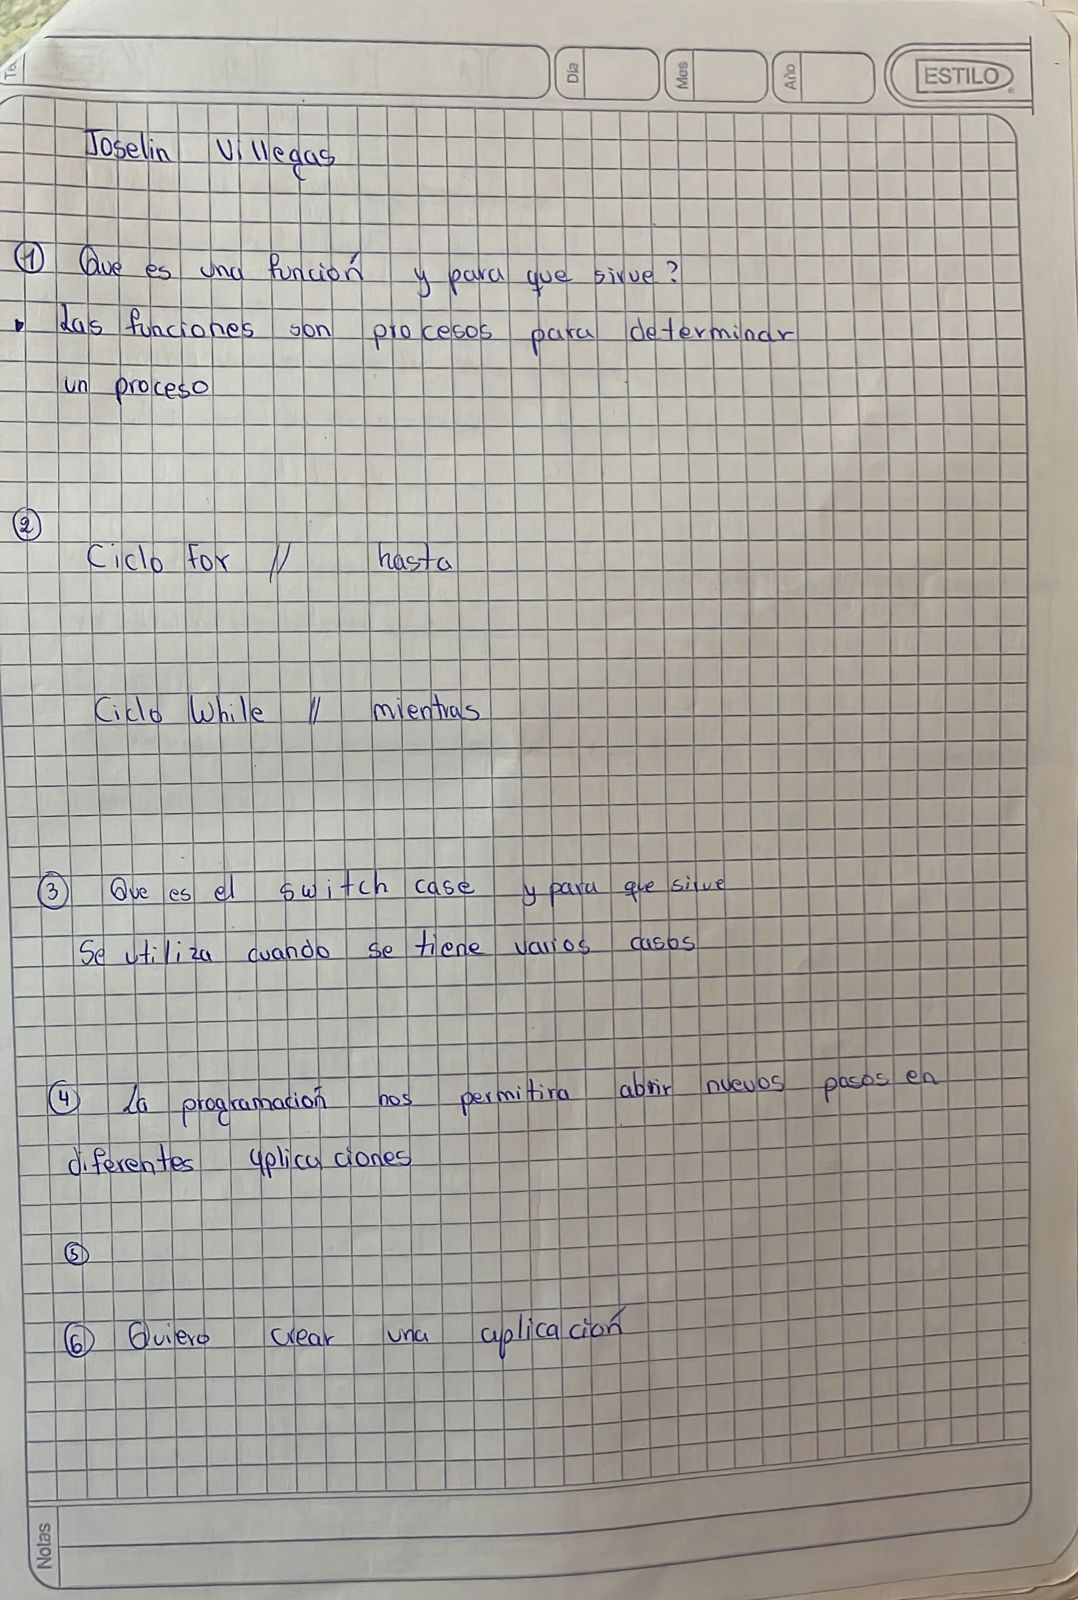 Día
Mes
Año
ESTILO
Joselin Villegas
① Que es una función y para que sirve?
• Las funciones son procesos para determinar
un proceso
②
Ciclo For // hasta
Ciclo While // mientras
③ Que es el switch case y para que sirve
Se utiliza cuando se tiene varios casos
④ La programación nos permitira abrir nuevos pasos en
diferentes aplicaciones
⑤
⑥ Quiero crear una aplicación
Notas